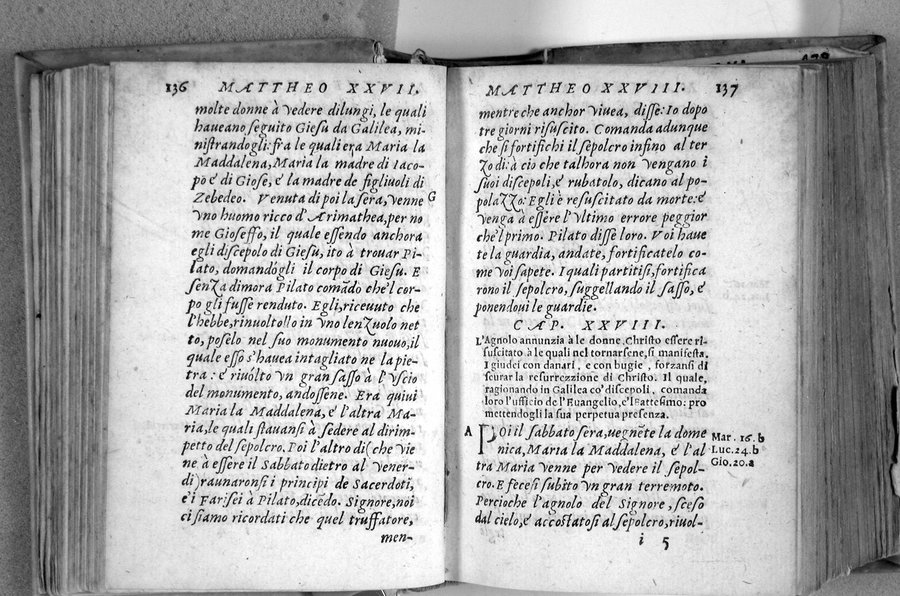 136 MATTHEO XXVII.
molte donne à vedere dilungi, le quali
haueano seguito Giesu da Galilea, mi-
nistrandogli: fra le quali era Maria la
Maddalena, Maria la madre di Iaco-
po è di Giose, é la madre de figliuoli di
Zebedeo. Venuta di poi la sera, venne G
vno huomo ricco d'Arimathea, per no
me Gioseffo, il quale essendo anchora
egli discepolo di Giesu, ito à trouar Pi-
lato, domandògli il corpo di Giesu. E
senza dimora Pilato comādo che'l cor-
po gli fusse renduto. Egli, riceuuto che
l'hebbe, rinuoltollo in vno lenzuolo net
to, poselo nel suo monumento nuouo, il
quale esso s'hauea intagliato ne la pie-
tra: é riuólto vn gran sasso à l'vscio
del monumento, andossene. Era quiui
Maria la Maddalena, é l'altra Ma-
ria, le quali stauansi à sedere al dirim-
petto del sepolcro. Poi l'altro di (che vie
ne à essere il Sabbato dietro al vener-
di) raunaronsi i principi de Sacerdoti,
é i Farisei à Pilato, dicēdo. Signore, noi
ci siamo ricordati che quel truffatore,
men-
MATTHEO XXVIII. 137
mentre che anchor viuea, disse: Io dopo
tre giorni risuscito. Comanda adunque
che si fortifichi il sepolcro infino al ter
zo di: à ciò che talhora non vengano i
suoi discepoli, é rubatolo, dicano al po-
polazzo: Egli è resuscitato da morte: é
venga à essere l'vltimo errore peggior
che'l primo. Pilato disse loro. Voi haue
te la guardia, andate, fortificatelo co-
me voi sapete. I quali partitisi, fortifica
rono il sepolcro, suggellando il sasso, é
ponendoui le guardie.
CAP. XXVIII.
L'Agnolo annunzia à le donne, Christo essere ri-
suscitato à le quali nel tornarsene, si manifesta.
I giudei con danari, e con bugie, forzansi di
scurar la resurrezzione di Christo. Il quale,
ragionando in Galilea co' discepoli, comanda
loro l'ufficio de l'Euangelio, e'l Battesimo: pro
mettendogli la sua perpetua presenza.
A Poi il sabbato sera, uegnēte la dome
nica, Maria la Maddalena, é l'al
tra Maria venne per vedere il sepol-
cro. E fecesi subito vn gran terremoto.
Percioche l'agnolo del Signore, sceso
dal cielo, é accostatosi al sepolcro, riuol-
Mar. 16. b
Luc. 24. b
Gio. 20. a
i 5